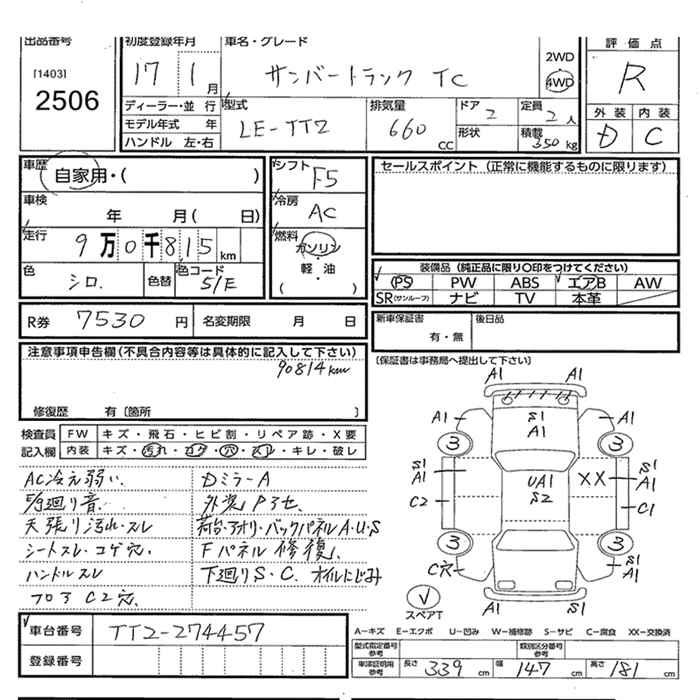 出品番号
[1403]
2506
初度登録年月
17 1 月
車名・グレード
サンバートラック TC
2WD
4WD
評価点
R
外装 内装
D C
ディーラー・並行
モデル年式 年
ハンドル 左・右
型式
LE-TT2
排気量
660 CC
ドア 2
形状
定員 2 人
積載 350 kg
車歴
自家用・( )
車検
年 月( 日)
走行
9万0千815 km
色
シロ
色替
色コード
51E
シフト
F5
冷房
AC
燃料
ガソリン
軽・油
( )
セールスポイント (正常に機能するものに限ります)
装備品 (純正品に限り○印をつけてください)
PS PW ABS エアB AW
SR(サンルーフ) ナビ TV 本革
R券 7530 円 名変期限 月 日
新車保証書
有・無
後日品
(保証書は事務局へ提出して下さい)
注意事項申告欄(不具合内容等は具体的に記入して下さい)
90814km
修復歴 有〔箇所 〕
検査員 FW キズ・飛石・ヒビ割・リペア跡・X要
記入欄 内装 キズ・汚れ・コゲ・穴・スレ・キレ・破レ
AC冷え弱い.
Dミラ-A
廻り音
外装Pアセ
天張り汚れ・スレ
荷台・アオリ・バックパネルA・U・S
シートスレ・コゲ穴.
Fパネル修復.
ハンドルスレ
下廻りS・C. オイルにじみ
フロアC2穴.
A1 A1
A1 S1 A1 A1
3 3
S1 A1 UA1 XX S1 A1
C2 S2 C1
3 3
C穴 S1 A1
スペアT
A1 S1
車台番号 TT2-274457
登録番号
A-キズ E-エクボ U-凹み W-補修跡 S-サビ C-腐食 XX-交換済
型式指定番号 参考
類別区分番号 参考
車庫証明用 参考
長さ 339 cm 幅 147 cm 高さ 181 cm